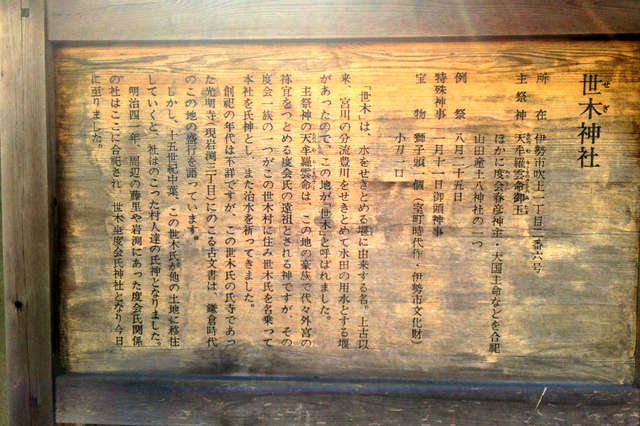 世木神社
せぎ
所在 伊勢市吹上一丁目二番六号
主祭神 天牟羅雲命御玉
ほかに度会春彦神主・大国主命などを合祀
山田産土八神社の一つ
例祭 八月二十五日
特殊神事 一月十一日御頭神事
宝物 獅子頭一個(室町時代作・伊勢市文化財)
小刀一口
「世木」は、水をせきとめる堰に由来する名。上古以
来、宮川の分流豊川をせきとめて水田の用水とする堰
があったので、この地が「世木」と呼ばれました。
主祭神の天牟羅雲命は、この地の豪族で代々外宮の
祢宜をつとめる度会氏の遠祖とされる神ですが、その
度会一族の一つがこの世木村に住み世木氏を名乗って
本社を氏神とし、また治水を祈ってきました。
創祀の年代は不詳ですが、この世木氏の氏寺であっ
た光明寺(現岩渕三丁目)にのこる古文書は、鎌倉時代
のこの地の盛行を語っています。
しかし、十五世紀中葉、この世木氏が他の土地に移住
していくと、社はのこった村人達の氏神となりました。
明治四一年、周辺の藤里や岩渕にあった度会氏関係
の社はここに合祀され、世木坐度会氏神社となり今日
に至りました。